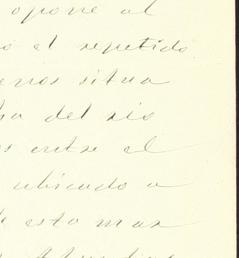 opone al
o el repetido
enos situa
ha del rio
es entre el
ubicado a
de esto mas